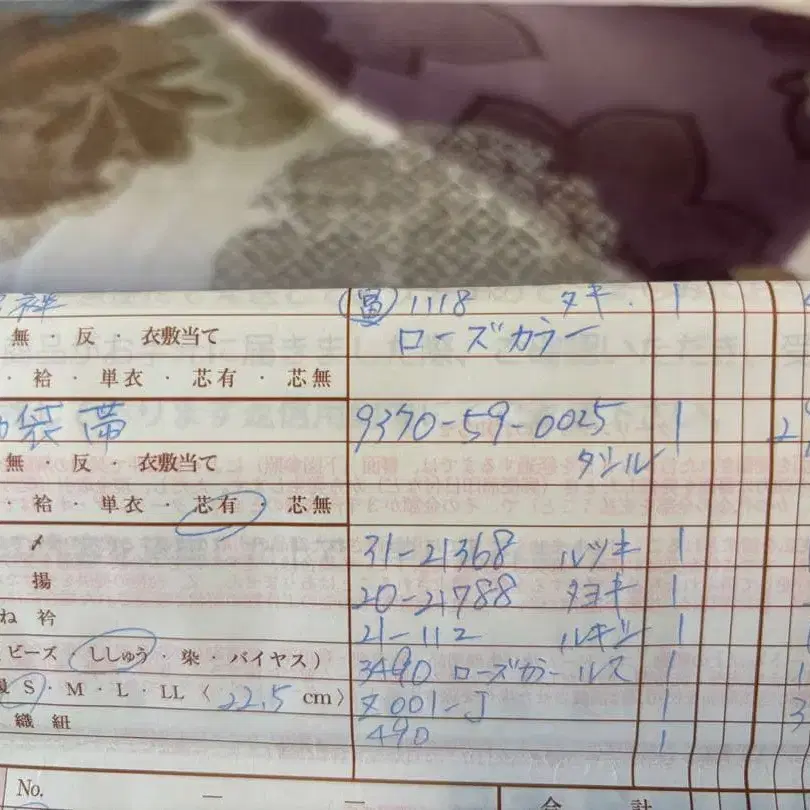 1118 タキ 1
無 ・ 反 ・ 衣敷当て ローズカラー
・ 袷 ・ 単衣 ・ 芯有 ・ 芯無
袋帯 9370-59-0025 1
無 ・ 反 ・ 衣敷当て
・ 袷 ・ 単衣 ・ 芯有 ・ 芯無
〆 31-21368 ルツキ 1
揚 20-21788 タヨキ 1
ね 衿 21-112 1
ビーズ ししゅう ・ 染 ・ バイヤス) 3490 ローズカラー ルス 1
S ・ M ・ L ・ LL 〈 22.5 cm〉 001-J 1 3
織 紐 490 1
No. — —
合 計